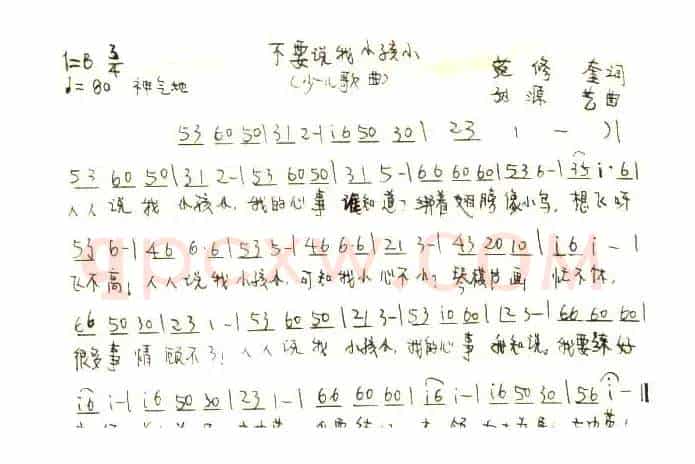 不要说我小孩小
1=B 3/4
(少儿歌曲)
♩=80 神气地
范修奎词
源艺曲
53 60 50|31 2-|i6 50 30|23 1 - )|
53 60 50|31 2-|53 60 50|31 5-|66 60 60|53 6-|35 i·6|
人人说我小孩小,我的心事谁知道?绑着翅膀像小鸟,想飞呀
53 6-|46 6·6|53 5-|46 6·6|21 3-|43 20 10|i6 i-|
飞不高!人人说我小孩小,可知我小心不小;琴棋书画忙不休,
66 50 30|23 1-|53 60 50|21 3-|53 10 60|12 3-|66 60 60|
很多事情顾不了!人人说我小孩小,我的心事我知道。我要练好
i6 i-|i6 50 30|23 1-|66 60 60|i6 i-|i6 50 30|56 i-‖